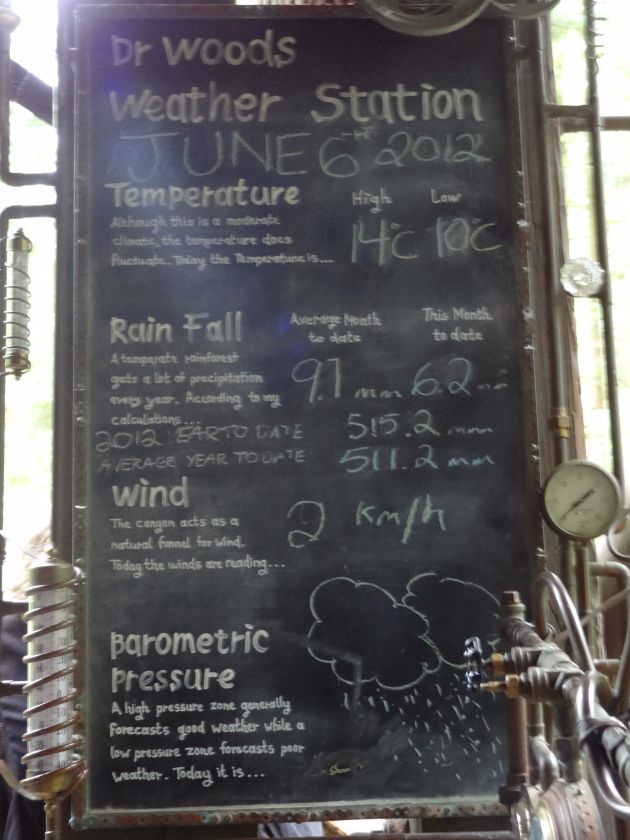 Dr Woods
Weather Station
JUNE 6TH 2012
Temperature High Low
Although this is a moderate
climate, the temperature does
fluctuate. Today the Temperature is...
14°C 10°C
Rain Fall Average Month to date This Month to date
A temperate rainforest
gets a lot of precipitation
every year. According to my
calculations...
9.1 mm 6.2 mm
2012 YEAR TO DATE 515.2 mm
AVERAGE YEAR TO DATE 511.2 mm
Wind
The canyon acts as a
natural funnel for wind.
Today the winds are reading...
2 Km/h
Barometric
Pressure
A high pressure zone generally
forecasts good weather while a
low pressure zone forecasts poor
weather. Today it is...